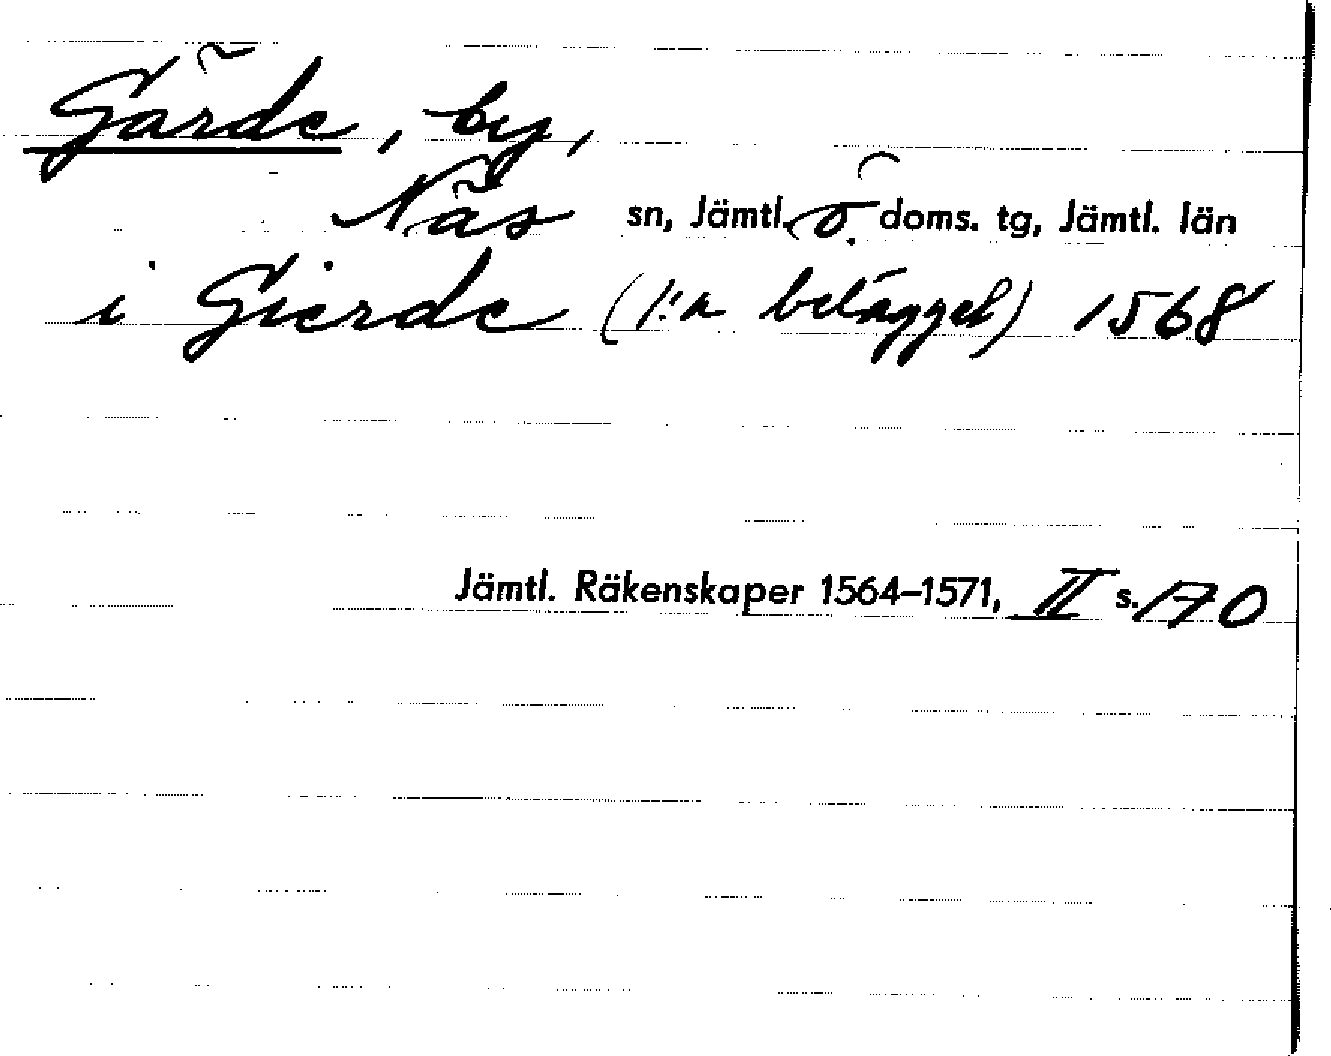 Gärde, by,
Näs sn, Jämtl. ö. doms. tg, Jämtl. län
i Gierde (1:a belägget) 1568
Jämtl. Räkenskaper 1564–1571, II s. 170